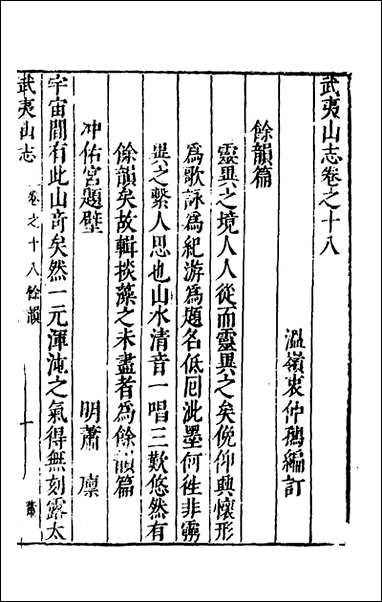 武夷山志卷之十八
溫嶺衷仲孺編訂
餘韻篇
靈異之境人人從而靈異之矣俛仰興懷形
爲歌詠爲紀游爲題名低囘泚墨何徃非靈
異之繫人思也山水清音一唱三歎悠然有
餘韻矣故輯掞藻之未盡者爲餘韻篇
冲佑宮題壁
明蕭㢘
宇宙間有此山竒矣然一元渾沌之氣得無刻露太
武夷山志
卷之十八餘韻
一